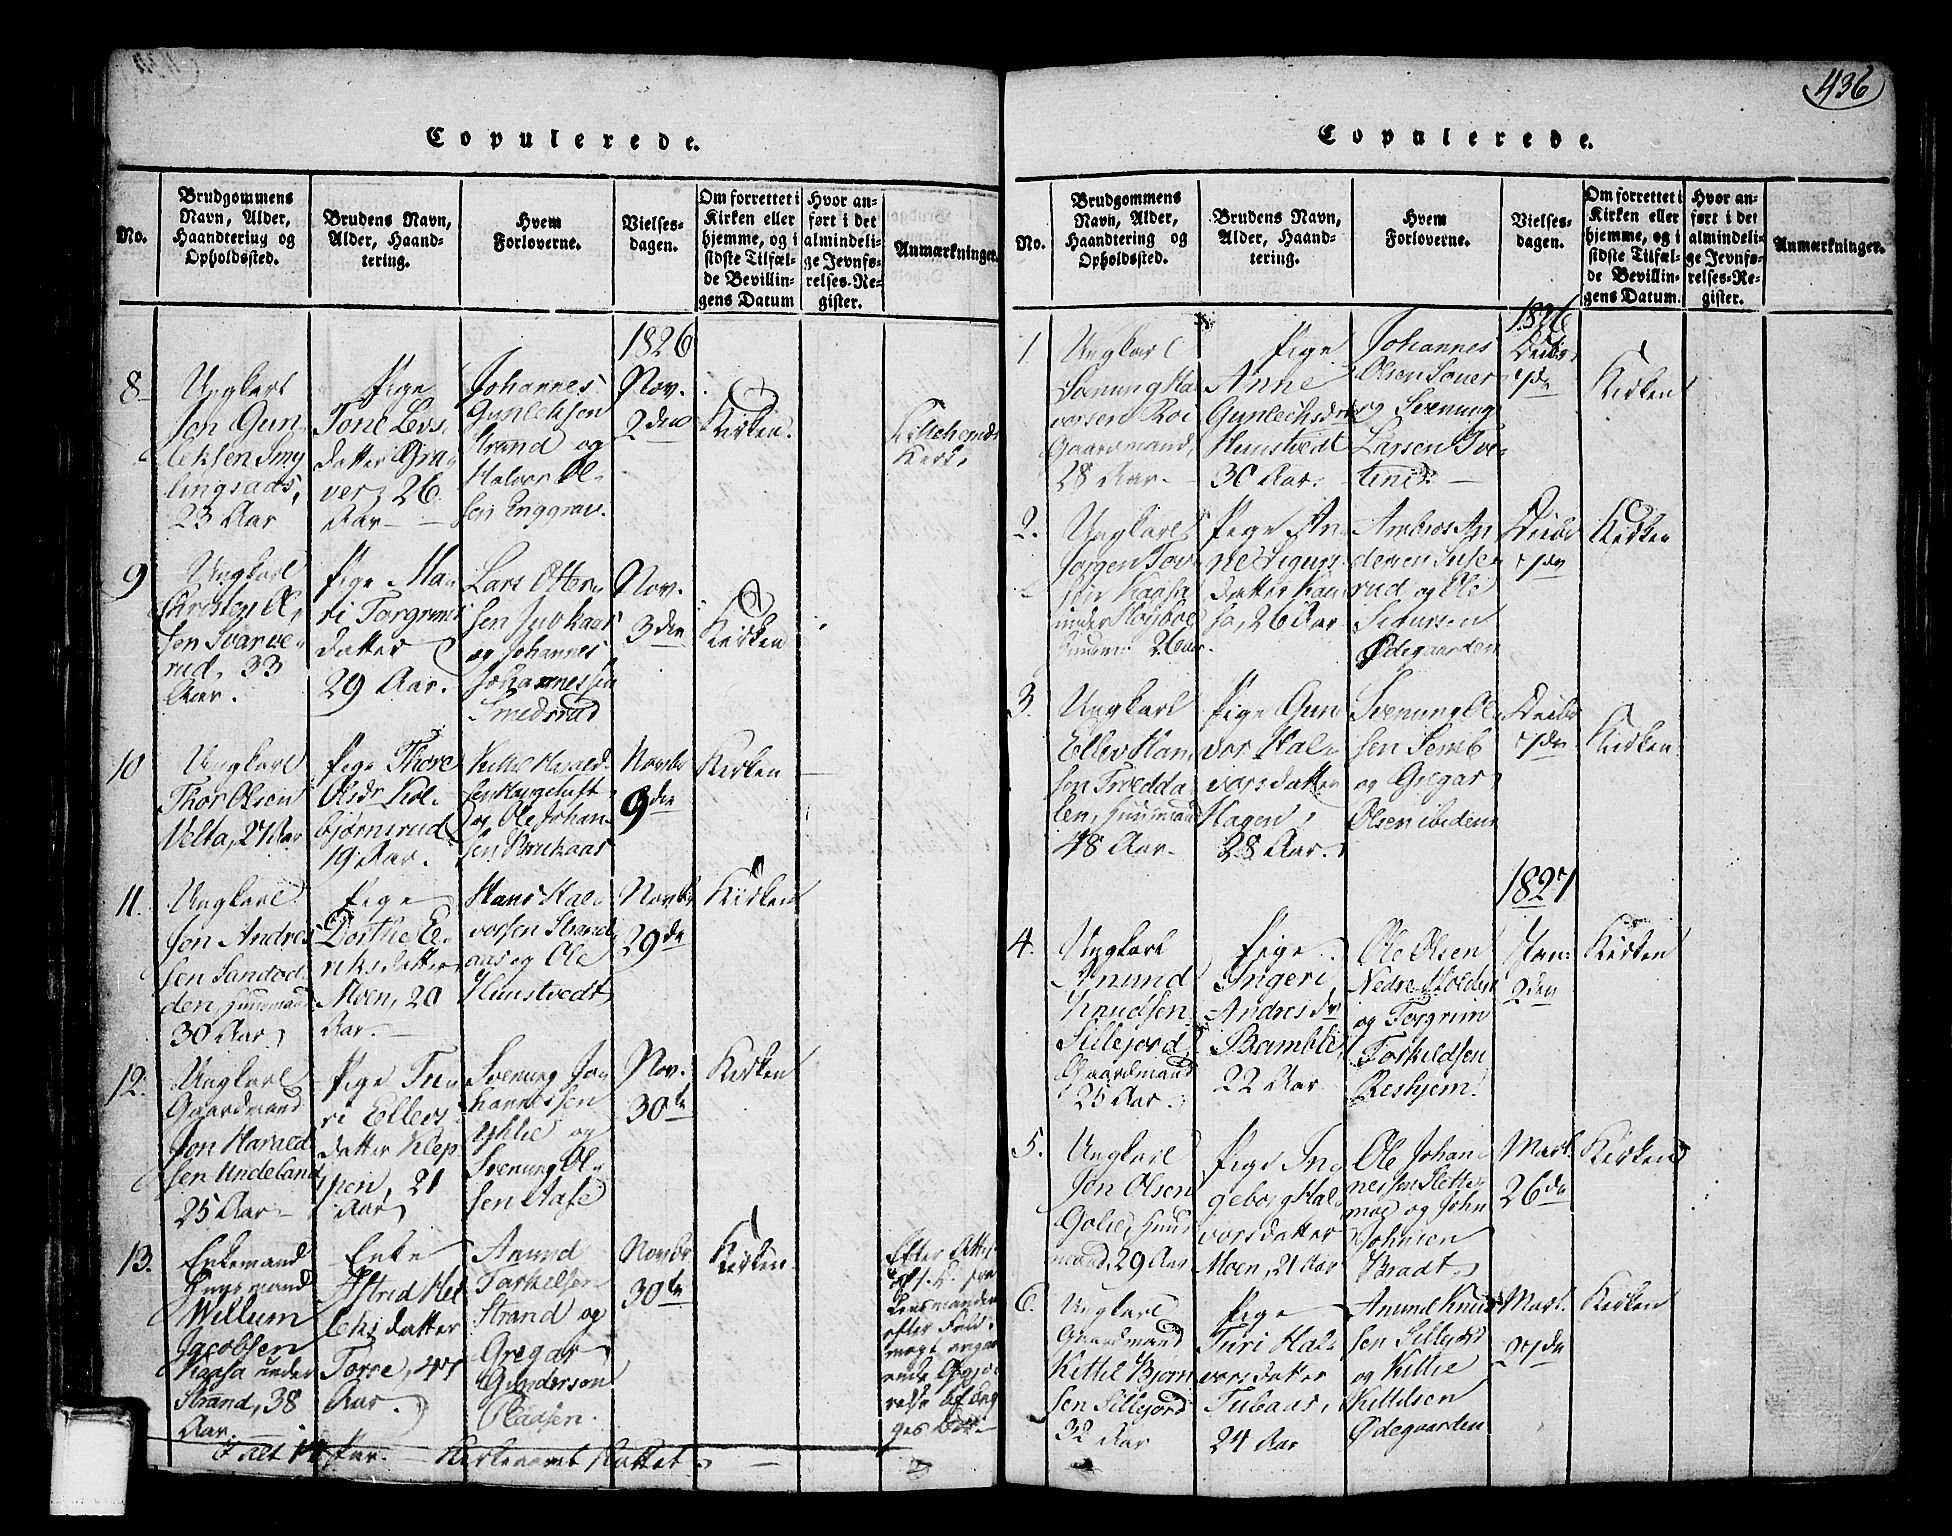 Copulerede.
No.
Brudgommens
Navn, Alder,
Haandtering og
Opholdssted.
Brudens Navn,
Alder, Haand-
tering.
Hvem
Forloverne.
Vielses-
dagen.
Om forrettet i
Kirken eller
hjemme, og i
sidste Tilfæl-
de Bevillin-
gens Datum
Hvor an-
ført i det
almindeli-
ge Jevnfø-
relses-Re-
gister.
Anmærkninger.
8
Ungkarl
Jon Gun
leksen Smy
lingsaas,
23 Aar
Pige
Tone Levs
datter Gra
ver, 26
Aar
Johannes
Gunleksen
Strand og
Halvor Ol-
sen Enggrav.
1826
Nov.
2den
Kirken.
9
Ungkarl
Christen Ol
sen Svarve-
rud, 33
Aar.
Pige Ma-
ri Torgrims
datter
29 Aar.
Lars Otter
sen Juvkaas
og Johannes
Johannessen
Smedsrud
Nov.
3die
Kirken
10
Ungkarl
Thor Olsen
Velta, 27 Aar
Pige Thore
Olsdr Kol-
bjørnsrud
19 Aar.
og Ole Johan-
sen Bruhaas
Novbr
9de
Kirken
11.
Ungkarl
Jon Andres
sen Sandød
den, Huusmand
30 Aar,
Pige
Dorthe E-
riksdatter
Moen, 20
Aar.
Hans Hal-
vorsen Strand
aas og Ole
Himstvedt
Novbr
29de
Kirken
12.
Ungkarl
Gaardmand
Jon Harved
sen Undeland
25 Aar
Pige Tu-
ri Ellevs
datter Klep
pen, 21
Aar
Svenung Jo-
hannessen
og
Svenung Ol-
sen Aase
Nov.
30te
Kirken
13.
Enkemand
Huusmand
Willum
Jacobsen
Kaasa under
Strand, 38
Aar.
Enke
Astred Kit
leksdatter
Torre, 47
Aar.
Aamund
Torkelsen
Strand og
Gregar
Gundersen
Pladsen.
Novbr
30te
Kirken.
Efter Attest
I alt 14 Par. —
Copulerede.
436
No.
Brudgommens
Navn, Alder,
Haandtering og
Opholdssted.
Brudens Navn,
Alder, Haand-
tering.
Hvem
Forloverne.
Vielses-
dagen.
Om forrettet i
Kirken eller
hjemme, og i
sidste Tilfæl-
de Bevillin-
gens Datum.
Hvor an-
ført i det
almindeli-
ge Jevnfø-
relses-Re-
gister.
Anmærkninger.
1
Ungkarl
Svenung Hal
vorsen Roe
Gaardmand,
28 Aar.
Pige
Anne
Gunlechsdr
Himstvedt
30 Aar.
Johannes
Olsen Souer
og Svenung
Larsen Tve-
tene.
1826
Decbr
7de
Kirken
2.
Ungkarl
Jørgen Tov-
sen Kaasa
under Høybøe
26 Aar.
Pige An
ne Sigurs
datter Kaa
sa, 26 Aar
Ambros An
dersen Susse
rud og Ole
Sidursen
Ødegaarden
Decbr
7de
Kirken
3.
Ungkarl
Ellev Han
sen Tvedda
len, Huusmand
48 Aar
Pige Gun
vor Hal-
vorsdatter
Hagen,
28 Aar.
Svenung Ol-
sen Semb
og Gregar
Olsen ibidem
Decbr
7de
Kirken
1827
4.
Ungkarl
Amund
Knudsen
Sillejord
Gaardmand
25 Aar.
Pige
Ingeri
Andersdr
Bamble
22 Aar
Ole Olsen
Nedre Holden
og Torgrim
Torkildsen
Reshjem.
Jan:
2den
Kirken
5.
Ungkarl
Jon Olsen
Golie, Huus
mand, 29 Aar
Pige In
geborg Hal-
vorsdatter
Moen, 21 Aar
Ole Johan
nessen Slette-
moe og John
Johnsen
Bradt
Mart.
26de
Kirken
6.
Ungkarl
Gaardmand
Kittil Bjørn
sen Sillejord
32 Aar
Pige
Turi Hal-
vorsdatter
Tubaas,
24 Aar
Amund Knud
sen Sillejord
og Kittil
Kittilsen
Ødegaarden
Mart.
27de
Kirken